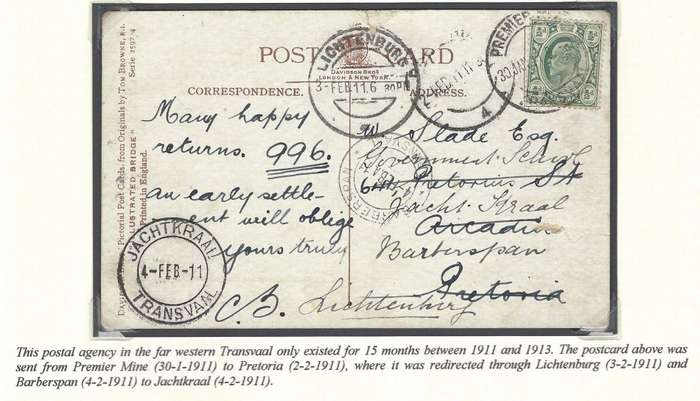 POST CARD
DAVIDSON BROS.
LONDON & NEW YORK.
CORRESPONDENCE.
ADDRESS.
LICHTENBURG
3-FEB.11.6 30PM
FEB.11.11
PREMIER
30 JAN
4
Many happy
returns. 996.
an early settle-
ment will oblige
yours truly
C.B.
W Slade Esq.
Government School
Pretorius St
Jacht Kraal
Arcadia
Barberspan
Pretoria
Lichtenburg
BARBERSPAN
JACHTKRAAL
4-FEB-11
TRANSVAAL
Pictorial Post Cards, from Originals by TOM BROWNE, R.I.
"ILLUSTRATED BRIDGE"
Serie 2597-4
Printed in England.
This postal agency in the far western Transvaal only existed for 15 months between 1911 and 1913. The postcard above was
sent from Premier Mine (30-1-1911) to Pretoria (2-2-1911), where it was redirected through Lichtenburg (3-2-1911) and
Barberspan (4-2-1911) to Jachtkraal (4-2-1911).